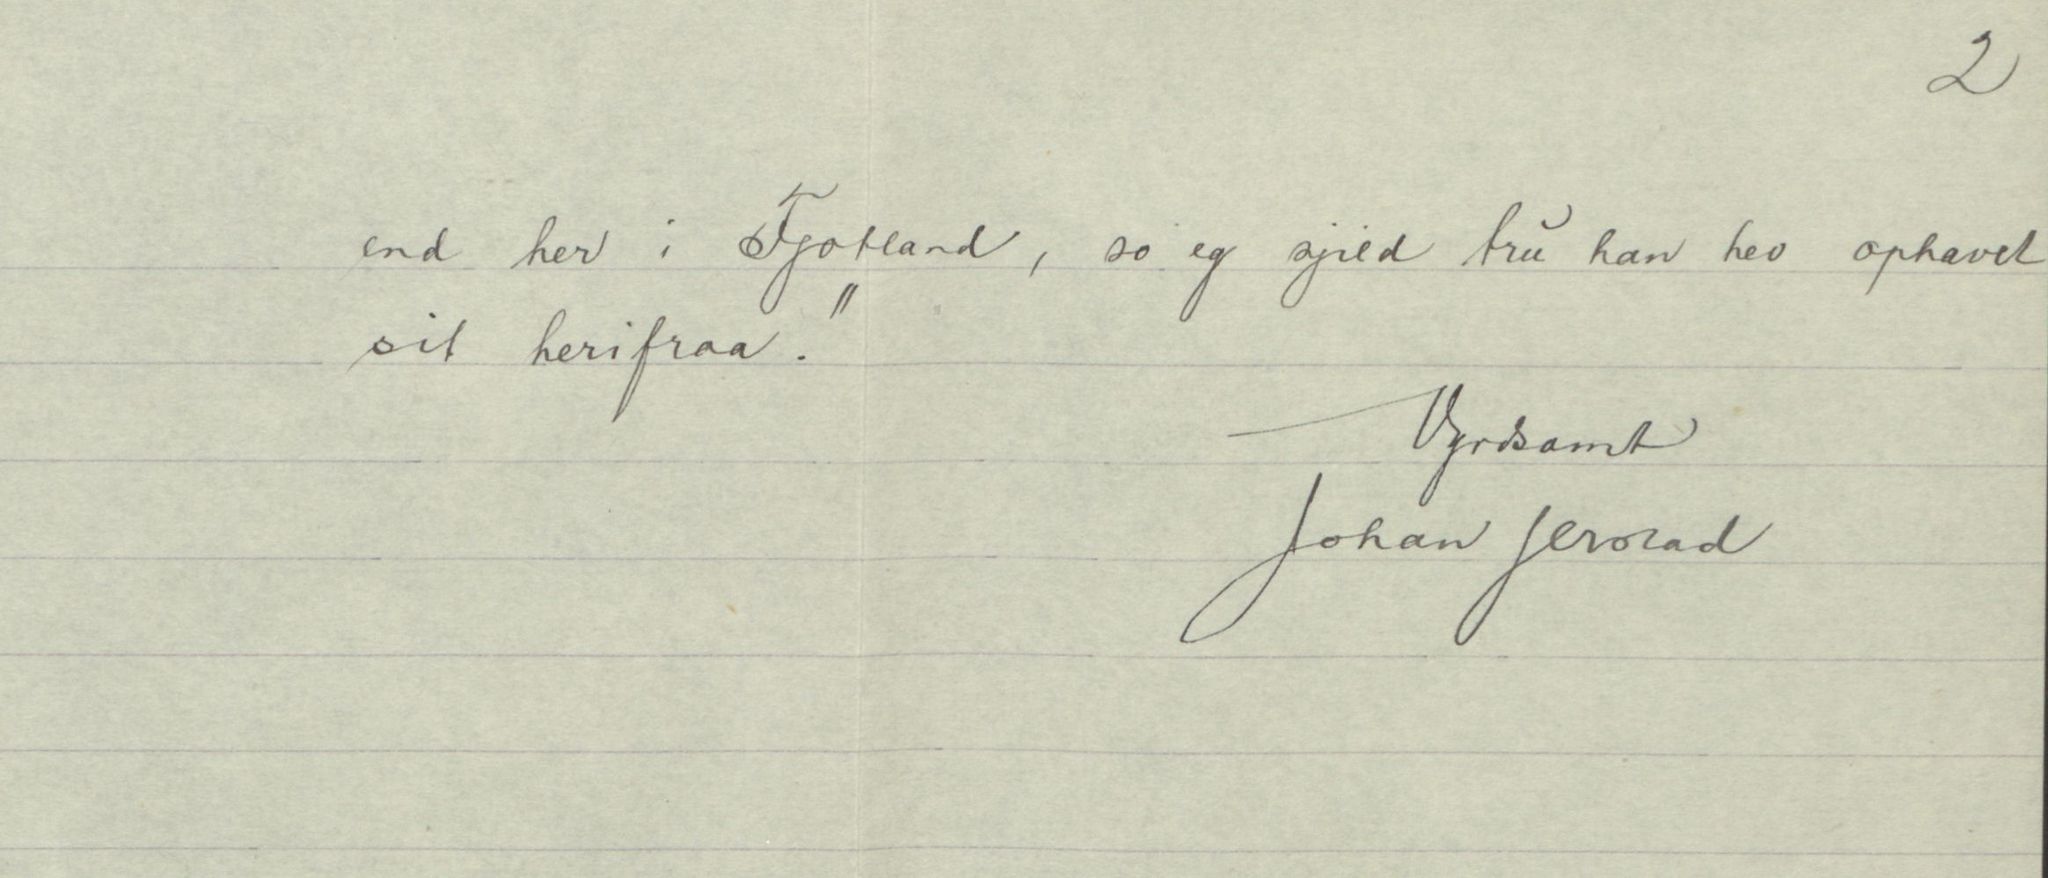 2
end her i Fjotland, so eg sjæld tru han hev ophavet
sit herifraa."
Vyrdsamt
Johan